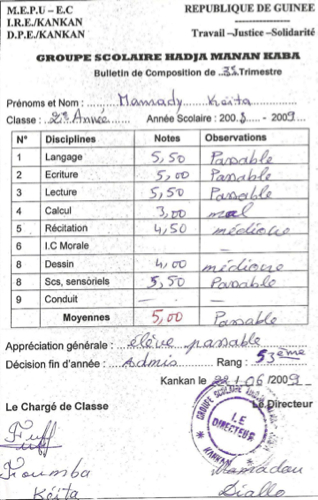 M.E.P.U – E.C REPUBLIQUE DE GUINEE
I.R.E./KANKAN
D.P.E./KANKAN Travail –Justice –Solidarité
GROUPE SCOLAIRE HADJA MANAN KABA
Bulletin de Composition de ..3è.Trimestre
Prénoms et Nom : Mamady Kéita
Classe : 2è Année Année Scolaire : 2008 - 2009
N° Disciplines Notes Observations
1 Langage 5,50 Passable
2 Ecriture 5,00 Passable
3 Lecture 5,50 Passable
4 Calcul 3,00 mal
5 Récitation 4,50 médiocre
6 I.C Morale — —
8 Dessin 4,00 médiocre
8 Scs, sensoriels 5,50 Passable
9 Conduit — —
Moyennes 5,00 Passable
Appréciation générale : élève passable
Décision fin d'année : Admis Rang : 53ème
Kankan le /06/2009
Le Chargé de Classe Le Directeur
GROUPE SCOLAIRE
I.E
DIRECTEUR
KANKAN
Foumba Mamadou
Kéita Diallo